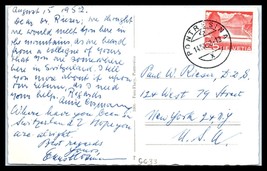 August 15 1952
Dear Dr. Rieser, we thought
we would meet you here in
the mountains as we heard
from a collegue of yours
that you are somewhere
in Switzerland. I tell
you more about it upon
our return, as I need
your help. Regards
Where have you been in
Switzerland? Hope you
are alright.
Best regards
Yours
PONTRESINA
HELVETIA
Paul W. Rieser, D.D.S.
124 West 79 Street
New York 24 N.Y.
U.S.A.